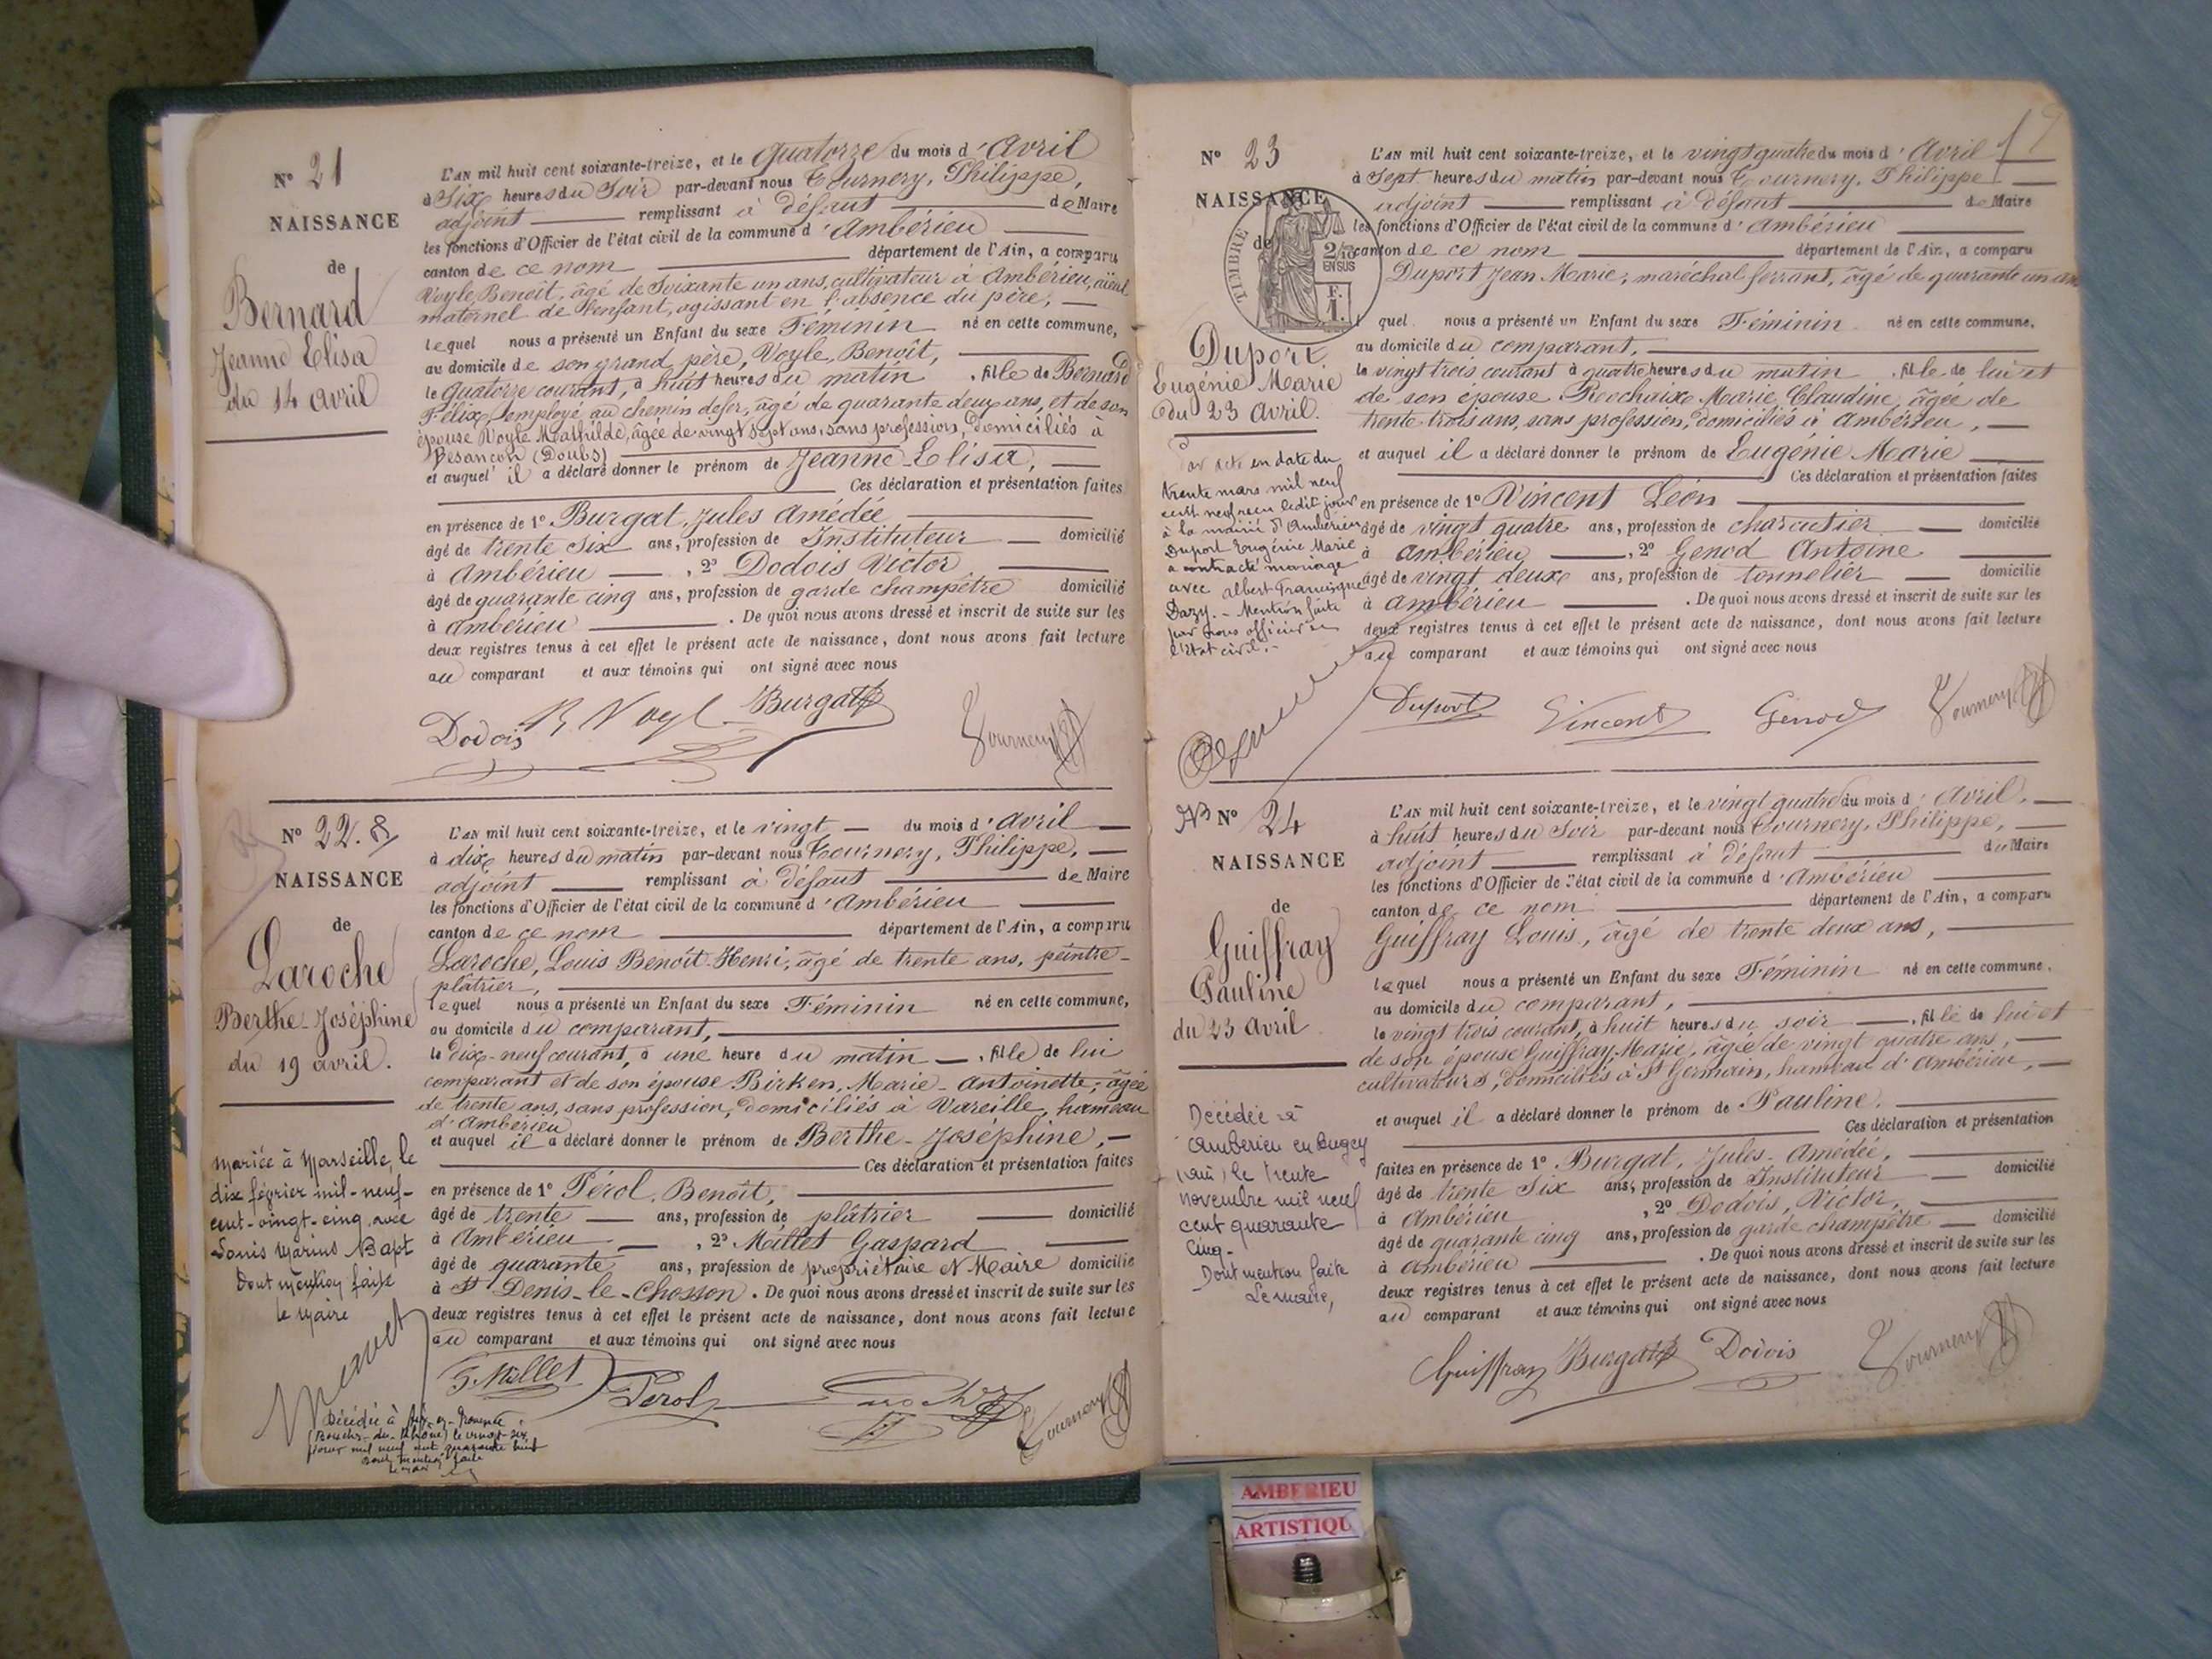 N° 21
NAISSANCE
de
Bernard
Jeanne Elisa
du 14 avril
L'AN mil huit cent soixante-treize, et le Quatorze du mois d'Avril
à Six heures du Soir par-devant nous Tournery, Philippe,
adjoint remplissant à défaut de Maire
les fonctions d'Officier de l'état civil de la commune d'Ambérieu
canton de ce nom département de l'Ain, a comparu
Voyle Benoît, âgé de soixante un ans, cultivateur à Ambérieu, aïeul
maternel de l'enfant, agissant en l'absence du père,
lequel nous a présenté un Enfant du sexe Féminin né en cette commune,
au domicile de son grand père, Voyle, Benoît,
le quatorze courant, à huit heures du matin, fille de Bernard
Félix, employé au chemin de fer, âgé de quarante deux ans, et de son
épouse Voyle Mathilde, âgée de vingt sept ans, sans profession, domiciliés à
Besançon (Doubs)
et auquel il a déclaré donner le prénom de Jeanne-Elisa,
Ces déclaration et présentation faites
en présence de 1° Burgat, Jules Amédée
âgé de trente six ans, profession de Instituteur domicilié
à Ambérieu, 2° Dodois Victor
âgé de quarante cinq ans, profession de garde champêtre domicilié
à Ambérieu. De quoi nous avons dressé et inscrit de suite sur les
deux registres tenus à cet effet le présent acte de naissance, dont nous avons fait lecture
au comparant et aux témoins qui ont signé avec nous
Dodois B Voyl Burgat Tournery
N° 22.
NAISSANCE
de
Laroche
Berthe-Joséphine
du 19 avril.
mariée à Marseille, le
dix février mil-neuf-
cent-vingt-cinq avec
Louis Marius Bapt
Dont mention faite
le Maire
Décédée à Aix-en-Provence
(Bouches-du-Rhône) le vingt-six
février mil neuf cent quarante huit
Dont mention faite
L'AN mil huit cent soixante-treize, et le vingt du mois d'Avril
à dix heures du matin par-devant nous Tournery, Philippe,
adjoint remplissant à défaut de Maire
les fonctions d'Officier de l'état civil de la commune d'Ambérieu
canton de ce nom département de l'Ain, a comparu
Laroche, Louis Benoît-Henri, âgé de trente ans, peintre-
plâtrier,
lequel nous a présenté un Enfant du sexe Féminin né en cette commune,
au domicile du comparant,
le dix-neuf courant, à une heure du matin, fille de lui
comparant et de son épouse Birken, Marie-Antoinette, âgée
de trente ans, sans profession, domiciliés à Vareille, hameau
d'Ambérieu
et auquel il a déclaré donner le prénom de Berthe-Joséphine,
Ces déclaration et présentation faites
en présence de 1° Pérol, Benoît,
âgé de trente ans, profession de plâtrier domicilié
à Ambérieu, 2° Millet Gaspard
âgé de quarante ans, profession de propriétaire et Maire domicilié
à St Denis-le-Chosson. De quoi nous avons dressé et inscrit de suite sur les
deux registres tenus à cet effet le présent acte de naissance, dont nous avons fait lecture
au comparant et aux témoins qui ont signé avec nous
G. Millet Pérol Tournery
N° 23
NAISSANCE
de
TIMBRE
2/10
EN SUS
F.
1.
Duport
Eugénie Marie
du 23 avril.
Par acte en date du
trente mars mil neuf
cent neuf reçu ledit jour
à la mairie d'Ambérieu
Duport Eugénie Marie
a contracté mariage
avec Albert Francisque
Dazy. - Mention faite
par nous officier de
l'état civil.-
L'AN mil huit cent soixante-treize, et le vingt quatre du mois d'Avril
à Sept heures du matin par-devant nous Tournery, Philippe
adjoint remplissant à défaut de Maire
les fonctions d'Officier de l'état civil de la commune d'Ambérieu
canton de ce nom département de l'Ain, a comparu
Duport Jean-Marie, maréchal ferrant, âgé de quarante un ans
quel nous a présenté un Enfant du sexe Féminin né en cette commune,
au domicile du comparant,
le vingt trois courant à quatre heures du matin, fille de lui et
de son épouse Reochaix Marie Claudine, âgée de
trente trois ans, sans profession, domiciliés à Ambérieu,
et auquel il a déclaré donner le prénom de Eugénie Marie
Ces déclaration et présentation faites
en présence de 1° Vincent Léon
âgé de vingt quatre ans, profession de charcutier domicilié
à Ambérieu, 2° Genod Antoine
âgé de vingt deux ans, profession de tonnelier domicilié
à Ambérieu. De quoi nous avons dressé et inscrit de suite sur les
deux registres tenus à cet effet le présent acte de naissance, dont nous avons fait lecture
au comparant et aux témoins qui ont signé avec nous
Duport Vincent Genod Tournery
N° 24
NAISSANCE
de
Guiffray
Pauline
du 23 avril
Décédée à
Ambérieu en Bugey
(Ain) le trente
novembre mil neuf
cent quarante
cinq-
Dont mention faite
Le maire,
L'AN mil huit cent soixante-treize, et le vingt quatre du mois d'Avril,
à huit heures du Soir par-devant nous Tournery, Philippe,
adjoint remplissant à défaut du Maire
les fonctions d'Officier de l'état civil de la commune d'Ambérieu
canton de ce nom département de l'Ain, a comparu
Guiffray Louis, âgé de trente deux ans,
lequel nous a présenté un Enfant du sexe Féminin né en cette commune,
au domicile du comparant,
le vingt trois courant, à huit heures du soir, fille de lui et
de son épouse Guiffray Marie, âgée de vingt quatre ans,
cultivateurs, domiciliés à St Germain, hameau d'Ambérieu,
et auquel il a déclaré donner le prénom de Pauline.
Ces déclaration et présentation
faites en présence de 1° Burgat, Jules-Amédée,
âgé de trente Six ans, profession de Instituteur domicilié
à Ambérieu, 2° Dodois, Victor,
âgé de quarante cinq ans, profession de garde champêtre domicilié
à Ambérieu. De quoi nous avons dressé et inscrit de suite sur les
deux registres tenus à cet effet le présent acte de naissance, dont nous avons fait lecture
au comparant et aux témoins qui ont signé avec nous
Guiffray Burgat Dodois Tournery
AMBERIEU
ARTISTIQU